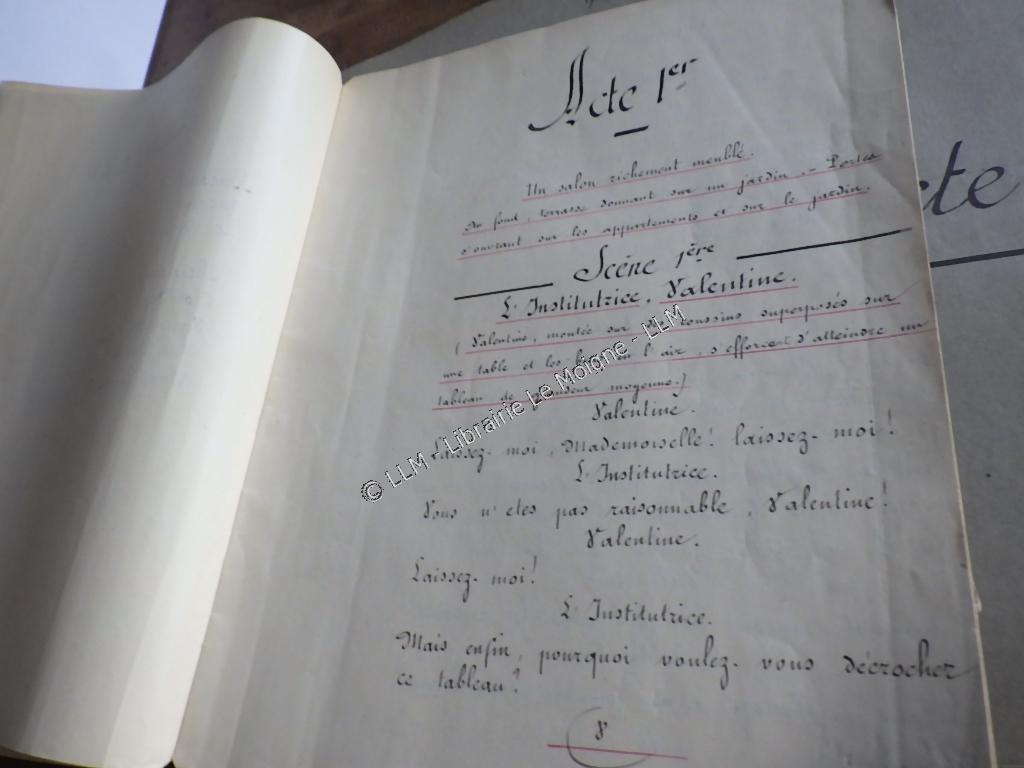 Acte 1er
Un salon richement meublé.
Au fond, terrasse donnant sur un jardin. - Portes
s'ouvrant sur les appartements et sur le jardin.
Scène 1ère
L'Institutrice, Valentine.
(Valentine, montée sur coussins superposés sur
une table et les l'air, s'efforce d'atteindre un
tableau de moyenne.)
Valentine.
Laissez-moi, Mademoiselle! laissez-moi!
L'Institutrice.
Vous n'etes pas raisonnable, Valentine!
Valentine.
Laissez-moi!
L'Institutrice.
Mais enfin, pourquoi voulez-vous décrocher
ce tableau?
cte
© LLM - Librairie Le Moigne - LLM